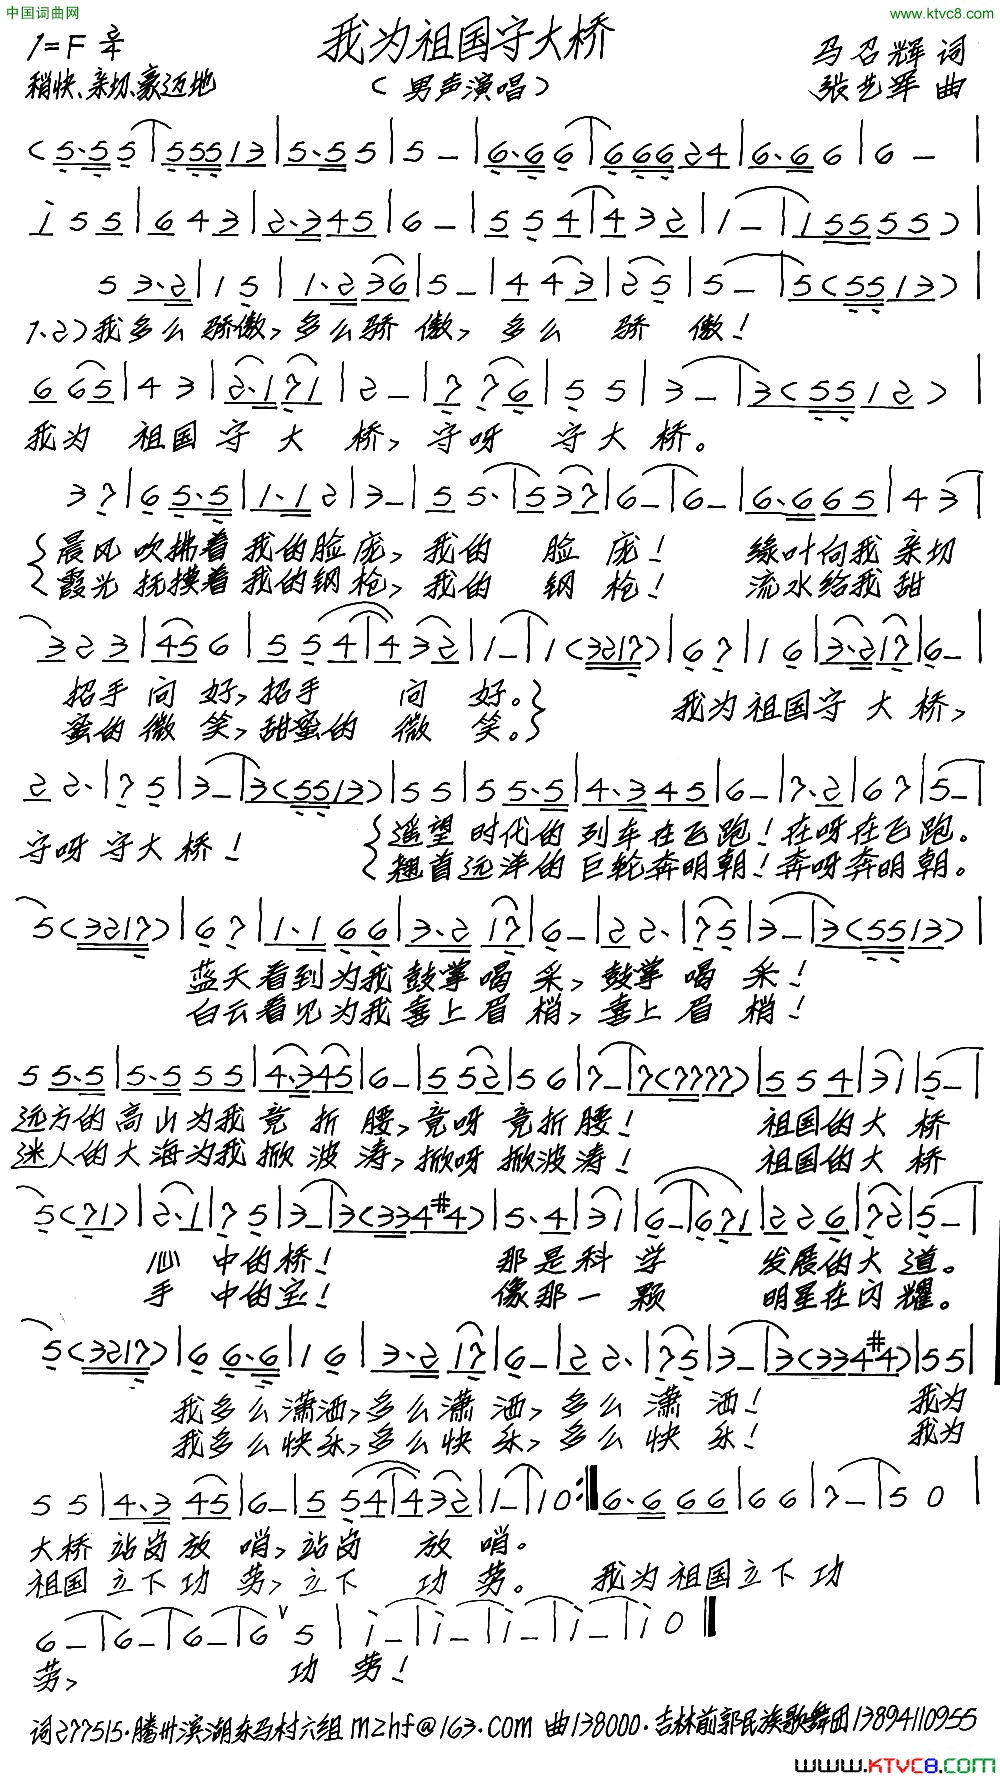 中国词曲网
www.ktvc8.com
我为祖国守大桥
1=F 2/4
马召辉 词
稍快、亲切、豪迈地
(男声演唱)
张艺军 曲
(5·5 5 | 5 5 5 1 3 | 5·5 5 | 5 – | 6·6 6 | 6 6 6 2 4 | 6·6 6 | 6 – |
i 5 5 | 6 4 3 | 2·3 4 5 | 6 – | 5 5 4 | 4 3 2 | 1 – | 1 5 5 5 5) |
5 3·2 | 1 5 | 1·2 3 6 | 5 – | 4 4 3 | 2 5 | 5 – | 5 (5 5 1 3) |
1、2)我多么骄傲,多么骄傲,多么骄傲!
6 6 5 | 4 3 | 2·1 7 1 | 2 – | 7 7 6 | 5 5 | 3 – | 3 (5 5 1 2) |
我为祖国守大桥,守呀守大桥。
3 7 | 6 5·5 | 1·1 2 | 3 – | 5 5· | 5 3 7 | 6 – | 6 – | 6·6 6 5 | 4 3 |
晨风吹拂着我的脸庞,我的脸庞! 缘叶向我亲切
霞光抚摸着我的钢枪,我的钢枪! 流水给我甜
3 2 3 | 4 5 6 | 5 5 4 | 4 3 2 | 1 – | 1 (3 2 1 7) | 6 7 | 1 6 | 3·2 1 7 | 6 – |
招手问好,招手问好。 我为祖国守大桥,
蜜的微笑,甜蜜的微笑。
2 2· | 7 5 | 3 – | 3 (5 5 1 3) | 5 5 | 5 5·5 | 4·3 4 5 | 6 – | 7·2 | 6 7 | 5 – |
遥望时代的列车在飞跑!在呀在飞跑。
守呀守大桥!
翘首远洋的巨轮奔明朝!奔呀奔明朝。
5 (3 2 1 7) | 6 7 | 1·1 6 6 | 3·2 1 7 | 6 – | 2 2· | 7 5 | 3 – | 3 (5 5 1 3) |
蓝天看到为我鼓掌喝采,鼓掌喝采!
白云看见为我喜上眉梢,喜上眉梢!
5 5·5 | 5·5 5 5 | 4·3 4 5 | 6 – | 5 5 2 | 5 6 | 7 – | 7 (7 7 7 7) | 5 5 4 | 3 1 | 5 – |
远方的高山为我竞折腰,竞呀竞折腰! 祖国的大桥
迷人的大海为我掀波涛,掀呀掀波涛! 祖国的大桥
5 (7 1) | 2·1 | 7 5 | 3 – | 3 (3 3 4 #4) | 5·4 | 3 1 | 6 – | 6 7 1 | 2 2 6 | 7 2 | 5 – |
心中的桥! 那是科学发展的大道。
手中的宝! 像那一颗明星在闪耀。
5 (3 2 1 7) | 6 6·6 | 1 6 | 3·2 1 7 | 6 – | 2 2· | 7 5 | 3 – | 3 (3 3 4 #4) | 5 5 |
我多么潇洒,多么潇洒,多么潇洒! 我为
我多么快乐,多么快乐,多么快乐! 我为
5 5 | 4·3 4 5 | 6 – | 5 5 4 | 4 3 2 | 1 – | 1 0 :| 6·6 6 6 | 6 6 | 7 – | 5 0 |
大桥站岗放哨,站岗放哨。
祖国立下功劳,立下功劳。 我为祖国立下功
6 – | 6 – | 6 – | 6 ∨ 5 | i – | i – | i – | i – | i 0 ‖
劳, 功劳!
词277515·滕州滨湖东马村六组mzhf@163.com 曲138000·吉林前郭民族歌舞团13894110955
www.KTVC8.com